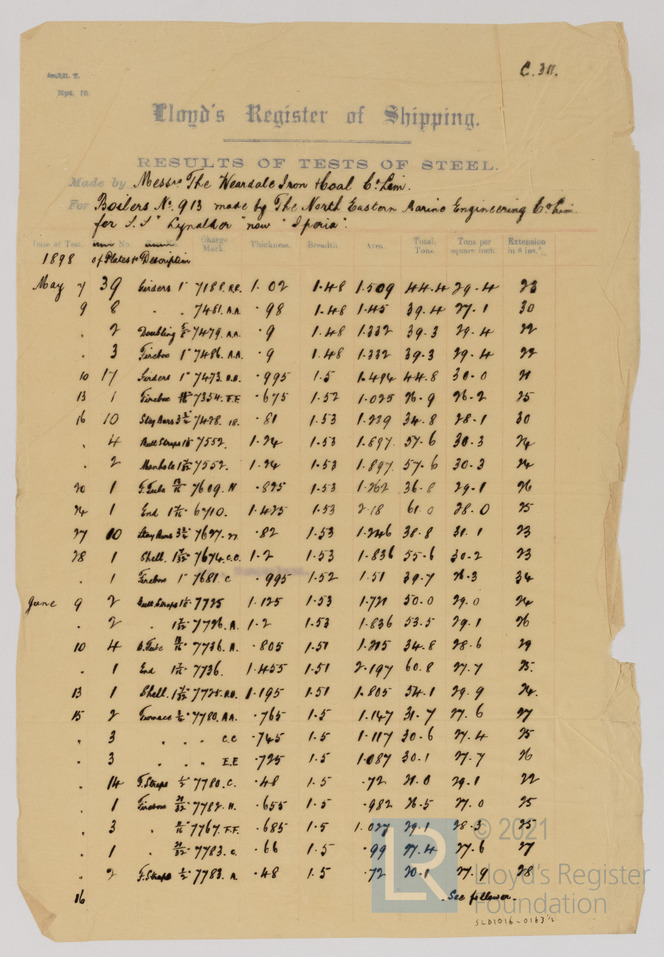 C. 311.
Rpt. 10.
Lloyd's Register of Shipping.
RESULTS OF TESTS OF STEEL.
Made by Messrs The Weardale Iron & Coal Co Lim.
For Boilers No. 913 made by The North Eastern Marine Engineering Co Lim
for S.S. "Lynaldor" now "Iporia".
Date of Test. No. Charge Mark. Thickness. Breadth. Area. Total Tons. Tons per square inch. Extension in 8 ins.
1898 of Plates & Description
May 7 39 Girders 1" 7188. 1.02 1.48 1.509 44.4 29.4 23
9 8 " " 7481. A.A. .98 1.48 1.45 39.4 27.1 30
" 2 Doubling 7479. A.A. .9 1.48 1.332 39.3 29.4 22
" 3 Firebox 1" 7486. A.A. .9 1.48 1.332 39.3 29.4 22
10 17 Girders 1" 7473. .995 1.5 1.494 44.8 30.0 21
13 1 Firebox 7354. E.E .675 1.52 1.025 26.9 26.2 25
16 10 Stay Bars 7478. .81 1.53 1.239 34.8 28.1 30
" 4 Butt Straps 7552. 1.24 1.53 1.897 57.6 30.3 24
" 2 Manhole 7552. 1.24 1.53 1.897 57.6 30.3 24
20 1 7609. H .825 1.53 1.262 36.8 29.1 26
24 1 End 6710. 1.425 1.53 2.18 61.0 28.0 25
27 10 Stay Bars 7627. .82 1.53 1.246 38.8 31.1 23
28 1 Shell. 7674. C.C. 1.2 1.53 1.836 55.6 30.2 23
" 1 Firebox 1" 7681. C .995 1.52 1.51 39.7 26.3 34
June 9 2 Butt Straps 7725 1.125 1.53 1.721 50.0 29.0 24
" 2 " 7726. A. 1.2 1.53 1.836 53.5 29.1 26
10 4 7736. A .805 1.51 1.215 34.8 28.6 29
" 1 End 7736. 1.455 1.51 2.197 60.8 27.7 25
13 1 Shell. 7725. 1.195 1.51 1.805 54.1 29.9 24
15 2 Furnace 7780. A.A. .765 1.5 1.147 31.7 27.6 27
" 3 " " " C.C .745 1.5 1.117 30.6 27.4 25
" 3 " " " E.E .725 1.5 1.087 30.1 27.7 26
" 14 F. Straps 7780. C. .48 1.5 .72 21.0 29.1 22
" 1 Firebox 7782. H. .655 1.5 .982 26.5 27.0 25
" 3 " 7767. F.F. .685 1.5 1.027 29.1 28.3 25
" 1 " 7783. C. .66 1.5 .99 27.4 27.6 27
" 2 F. Straps 7783. A. .48 1.5 .72 20.1 27.9 28
16 See follower.
© 2021
LR
Lloyd's Register
Foundation
SLD1016-0163½